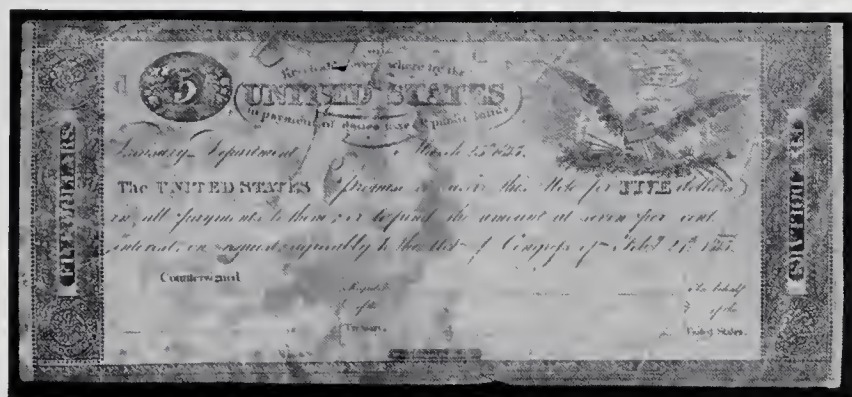 FIVE DOLLARS
5
Receivable every where by the
UNITED STATES
in payment of duties taxes & public lands
Treasury Department March 25th 1815.
The UNITED STATES promise to receive this Note for FIVE dollars
in all payments to them, or to fund the amount at seven per cent
interest, on request, agreeably to the Act of Congress of Feby. 24th 1815.
Countersigned
Register
of the
Treasury.
On behalf
of the
United States.
FIVE DOLLARS